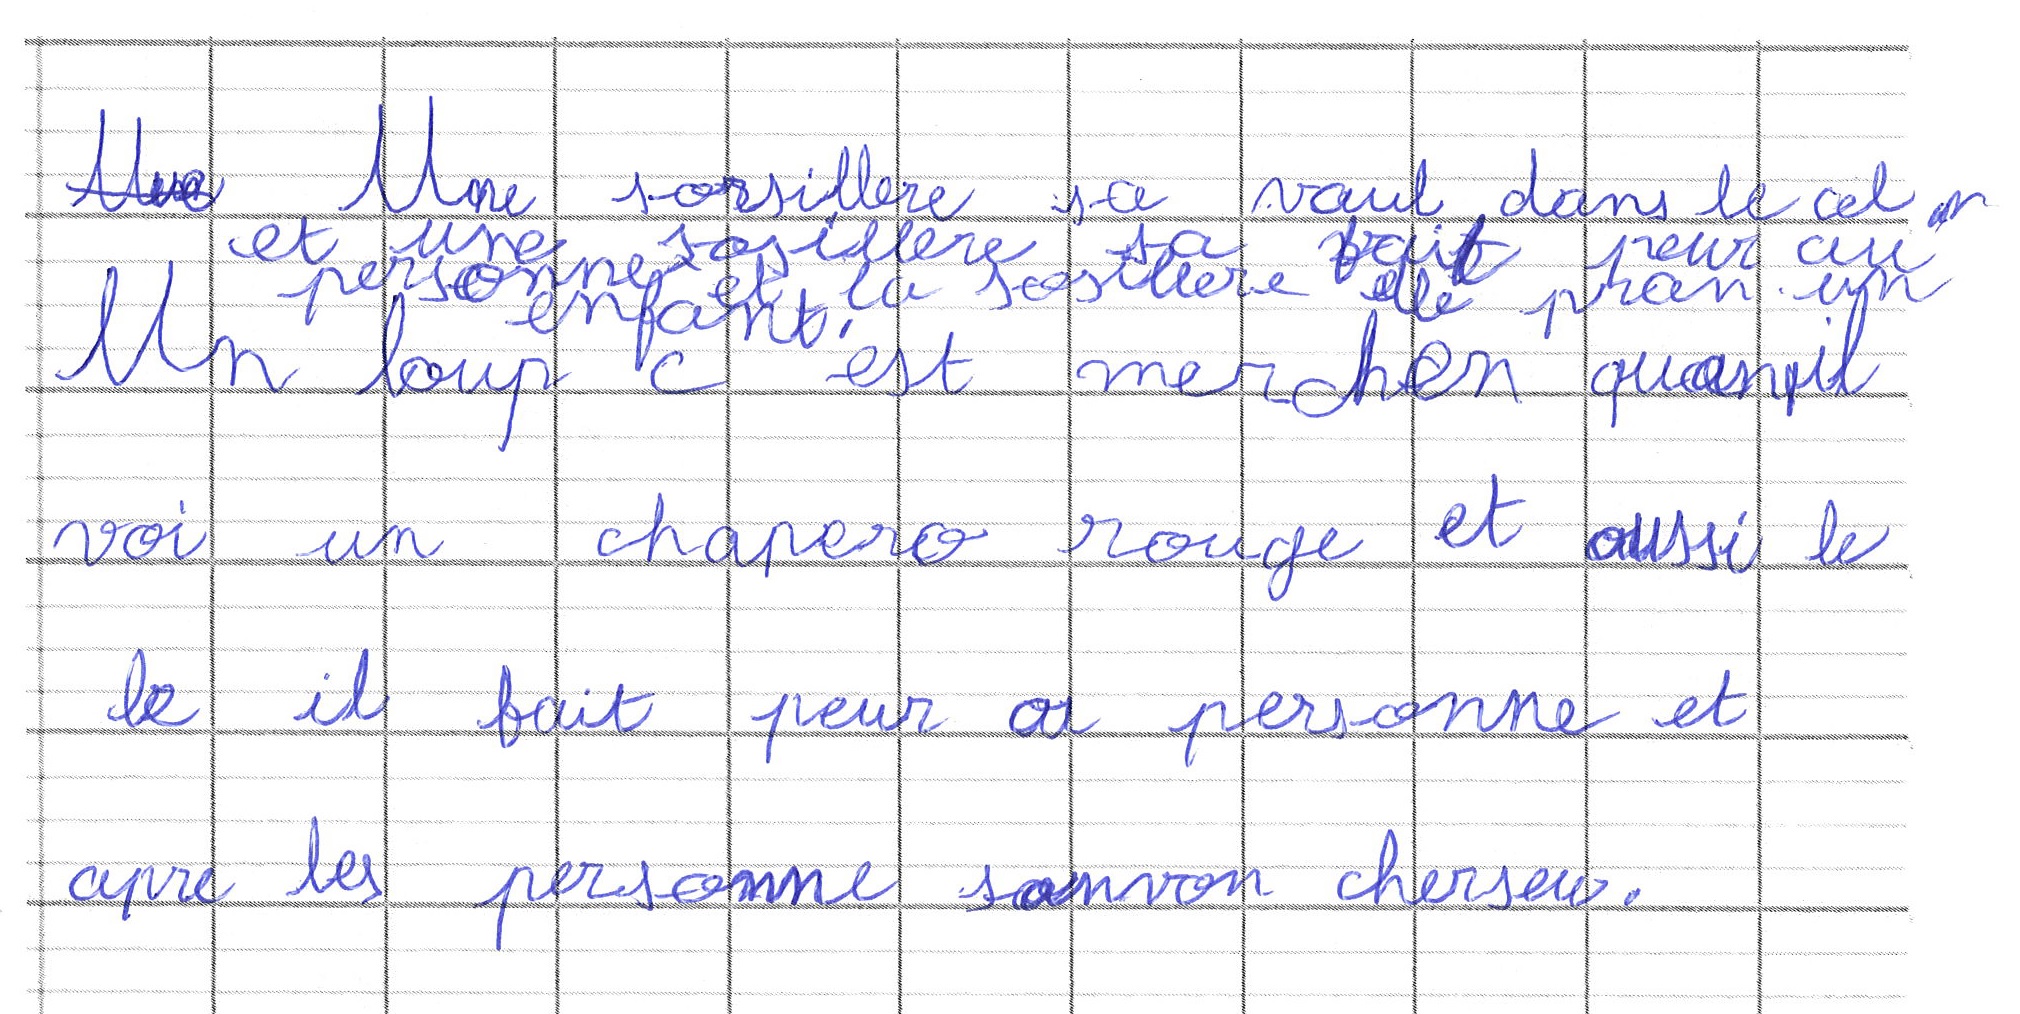 Une sorsillere sa vaul dans le ciel
et une sosillere sa fait peur au
personne et la sosillere elle pran un
enfant.
Un loup c est merchen quanpil
voi un chapero rouge et aussi le
le il fait peur a personne et
apre les personne sanvon cherseur.